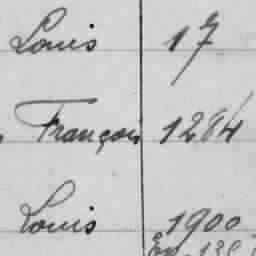 Louis 17
François 1284
Louis 1900